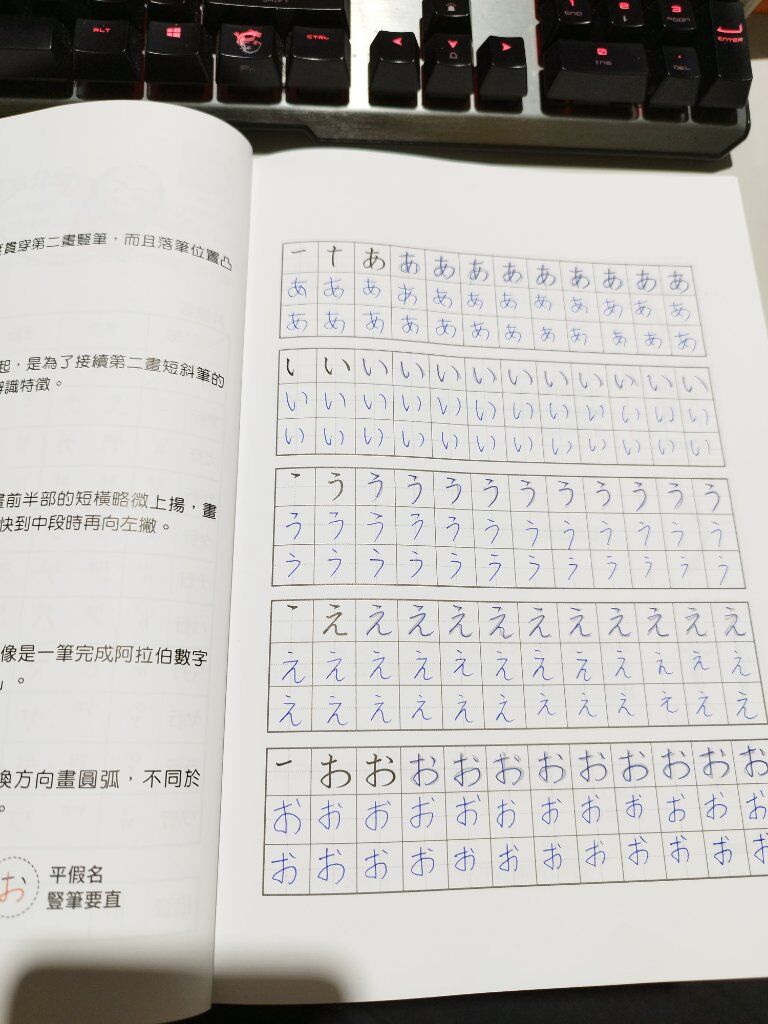 ALT CTRL END 2 3 PGDN ENTER
0 INS . DEL
貫穿第二畫豎筆，而且落筆位置凸
起，是為了接續第二畫短斜筆的
辨識特徵。
畫前半部的短橫略微上揚，畫
快到中段時再向左撇。
像是一筆完成阿拉伯數字
」。
換方向畫圓弧，不同於
。
お 平假名
豎筆要直
一 十 あ あ あ あ あ あ あ あ あ あ
あ あ あ あ あ あ あ あ あ あ あ あ
あ あ あ あ あ あ あ あ あ あ あ あ
い い い い い い い い い い い
い い い い い い い い い い い い
い い い い い い い い い い い い
う う う う う う う う う う う
う う う う う う う う う う う う
う う う う う う う う う う う う
え え え え え え え え え え え
え え え え え え え え え え え え
え え え え え え え え え え え え
一 お お お お お お お お お お お
お お お お お お お お お お お お
お お お お お お お お お お お お